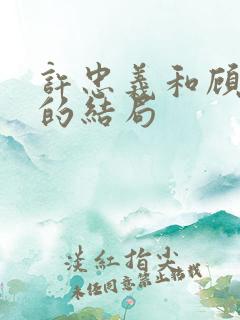 許忠義和顾
的结局
淡紅指尖
未经同意禁止转载